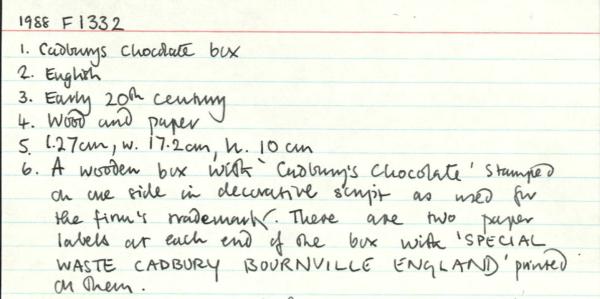 1988 F1332
1. Cadburys Chocolate box
2. English
3. Early 20th century
4. Wood and paper
5. l.27cm, w. 17.2cm, h. 10 cm
6. A wooden box with 'Cadbury's Chocolate' stamped
on one side in decorative script as used for
the firm's trademark. There are two paper
labels at each end of the box with 'SPECIAL
WASTE CADBURY BOURNVILLE ENGLAND' printed
on them.